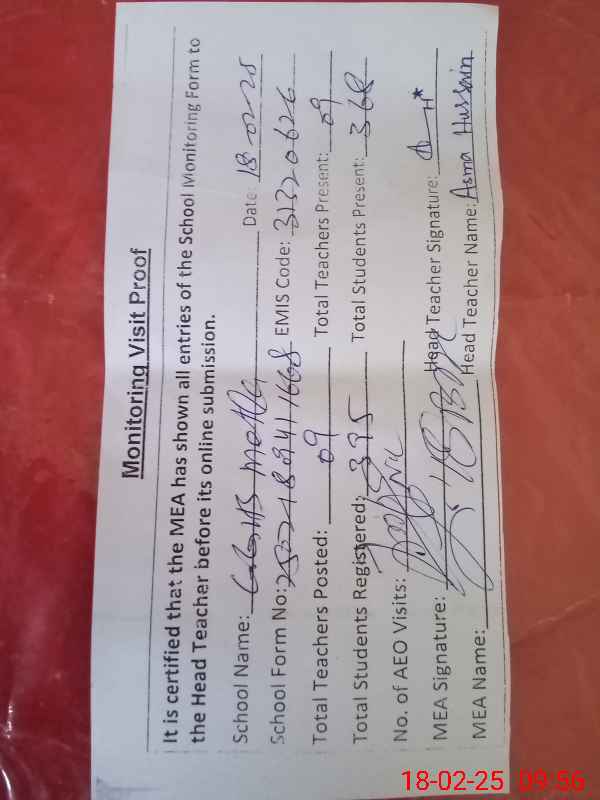 Monitoring Visit Proof
It is certified that the MEA has shown all entries of the School Monitoring Form to
the Head Teacher before its online submission.
School Name: Date: 18-02-25
School Form No: 250218094111668 EMIS Code: 31320626
Total Teachers Posted: 09 Total Teachers Present: 09
Total Students Registered: 395 Total Students Present: 368
No. of AEO Visits:
MEA Signature: Head Teacher Signature:
MEA Name: Head Teacher Name: Asma Hussain
18-02-25 09:56